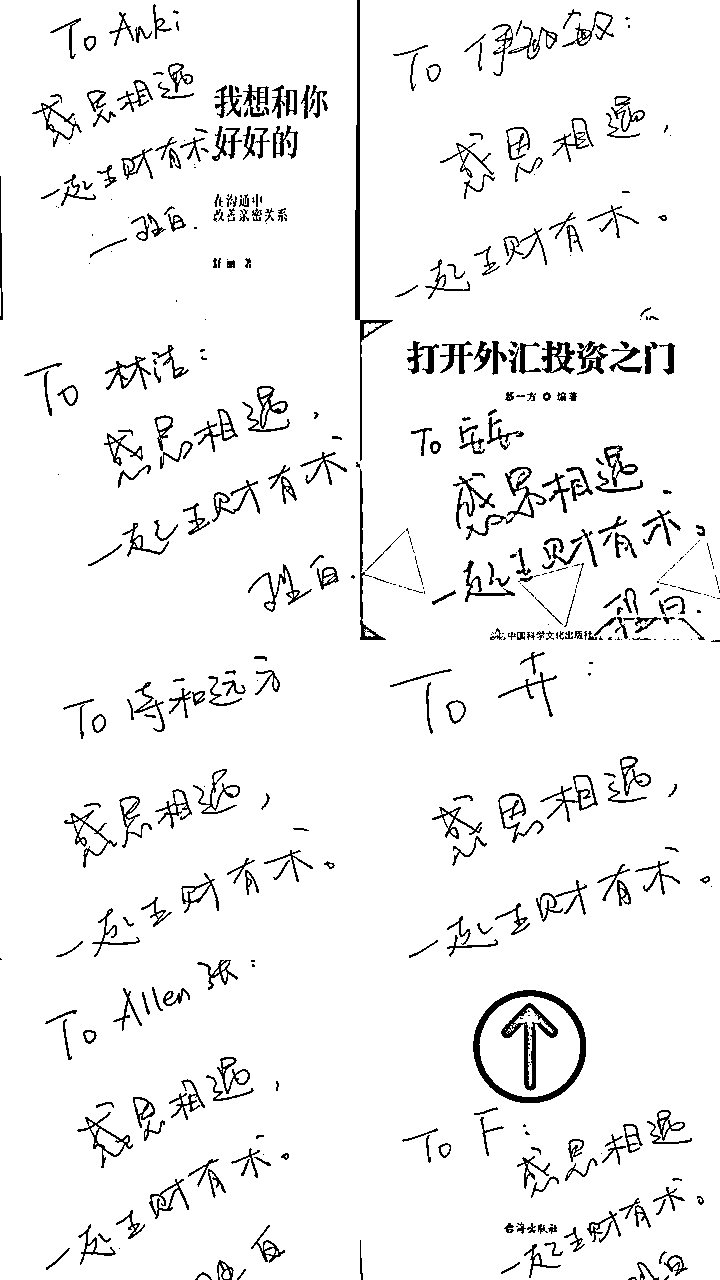 To Anki
感恩相遇
一起生财有术
我想和你
好好的
在沟通中
改善亲密关系
舒丽 著
To 伊敏敏:
感恩相遇,
一起生财有术。
To 林洁:
感恩相遇,
一起生财有术。
打开外汇投资之门
一方 编著
To 岳岳
感恩相遇
一起生财有术。
中国科学文化出版社
To 诗和远方
感恩相遇,
一起生财有术。
To 卉:
感恩相遇,
一起生财有术。
To Allen 张:
感恩相遇,
一起生财有术。
To F:
感恩相遇
台海出版社
一起生财有术。